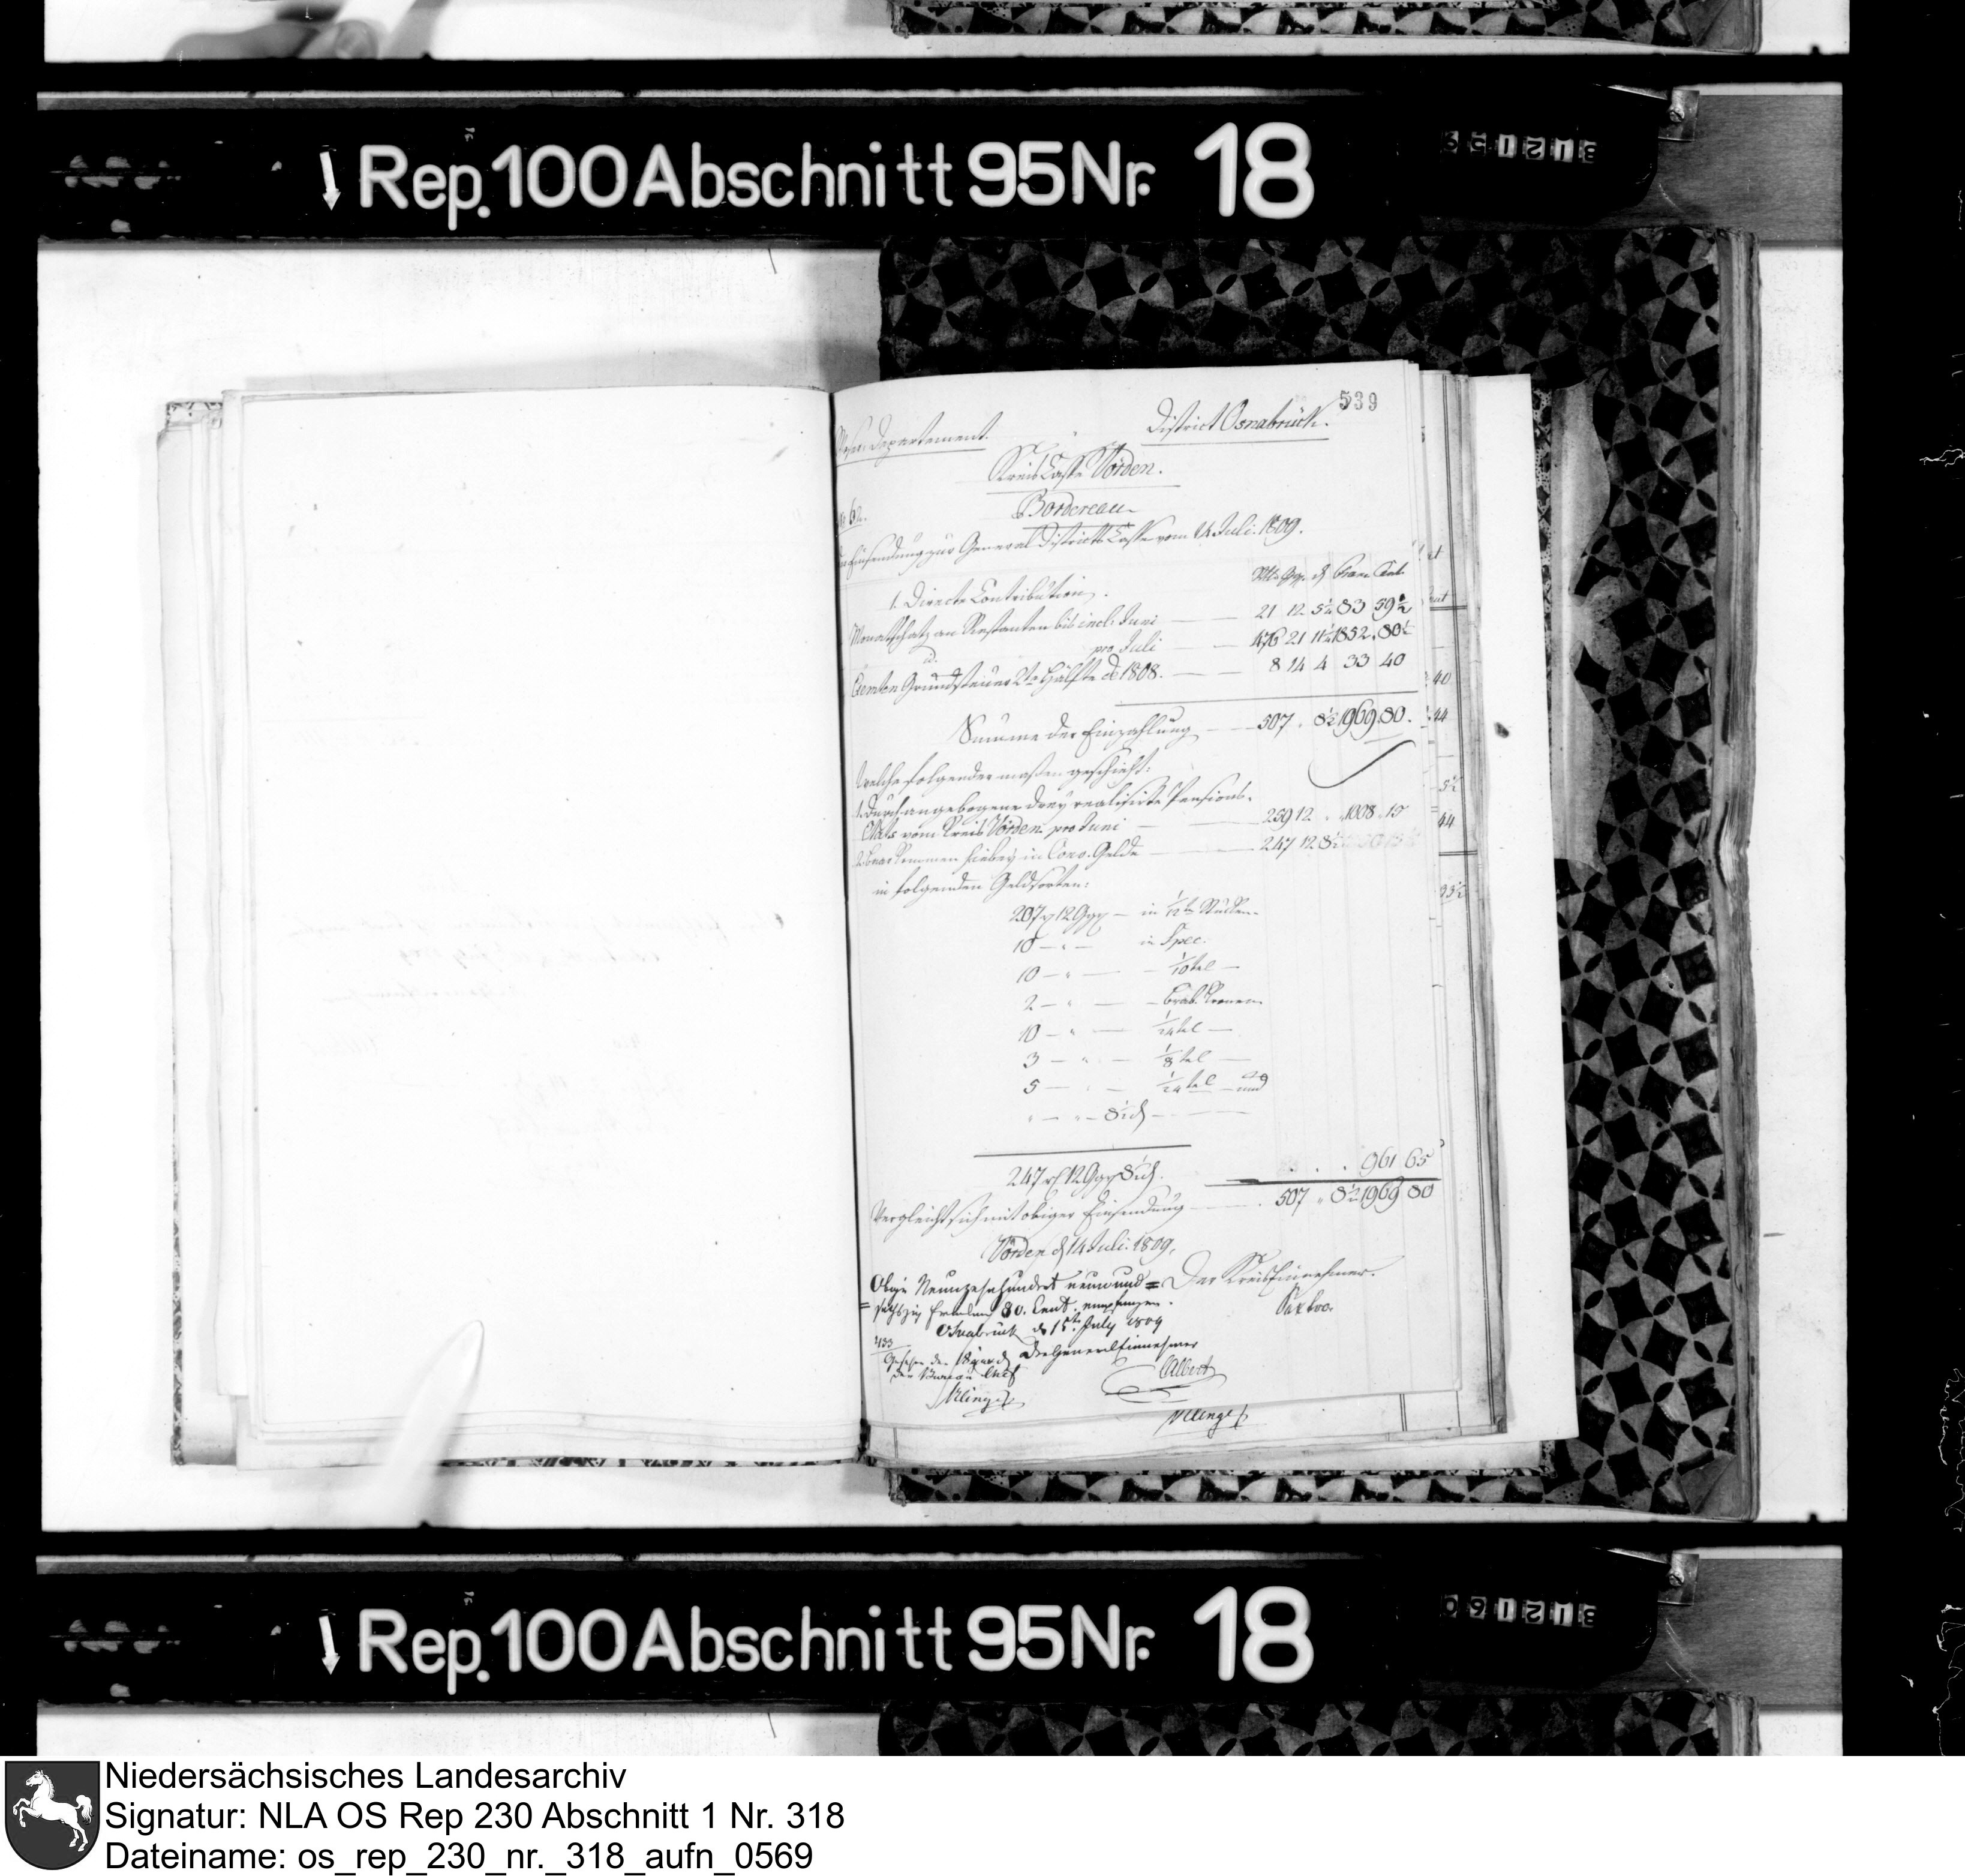 Rep. 100 Abschnitt 95 Nr. 18
539
Weser Departement.
District Osnabrück.
Kreis Casse Vörden.
No 62.
Bordereau
der Einsendung zur General Districts Casse vom 14 Juli 1809.
Rtlr Ggr. ₰ Franc Cent.
1. Directe Contribution.
Monatschatz an Restanten bis incl. Juni — 21 12 5½ 83 59½
pro Juli — 476 21 11½ 1852 80½
Grundsteuer 2te Hälfte de 1808. — 8 14 4 33 40
Summe der Einzahlung — 507 " 8½ 1969 80.
welche folgender maßen geschieht:
1. Durch angebogene drey realisirte Pensions-
Etats vom Kreis Vörden pro Juni — 259 12 " 1008 15
2. Baar kommen hiebey in Conv. Gelde — 247 12 8½
in folgenden Geldsorten:
207 rt 12 Ggr — in 1/12tel Stücken
10 — " — in Spec.
10 — " — 1/10tel —
2 — " — Brab. Kronen
10 — " — 1/24tel —
3 — " — 1/8tel —
5 — " — 1/24tel — und
" — " — 8½ ₰ —
247 rt 12 Ggr 8½ ₰. 961 65
Vergleicht sich mit obiger Einsendung — 507 " 8½ 1969 80
Vörden d 14 Juli 1809.
Der Kreis Einnehmer.
Obige Neunzehnhundert neunund=
=sechszig Franken 80. Cent. empfangen.
Osnabrück d 15t July 1809
Der General Einnehmer
433
Gesehen den
Der Bureau Chef
Albert
Rep. 100 Abschnitt 95 Nr. 18
Niedersächsisches Landesarchiv
Signatur: NLA OS Rep 230 Abschnitt 1 Nr. 318
Dateiname: os_rep_230_nr._318_aufn_0569